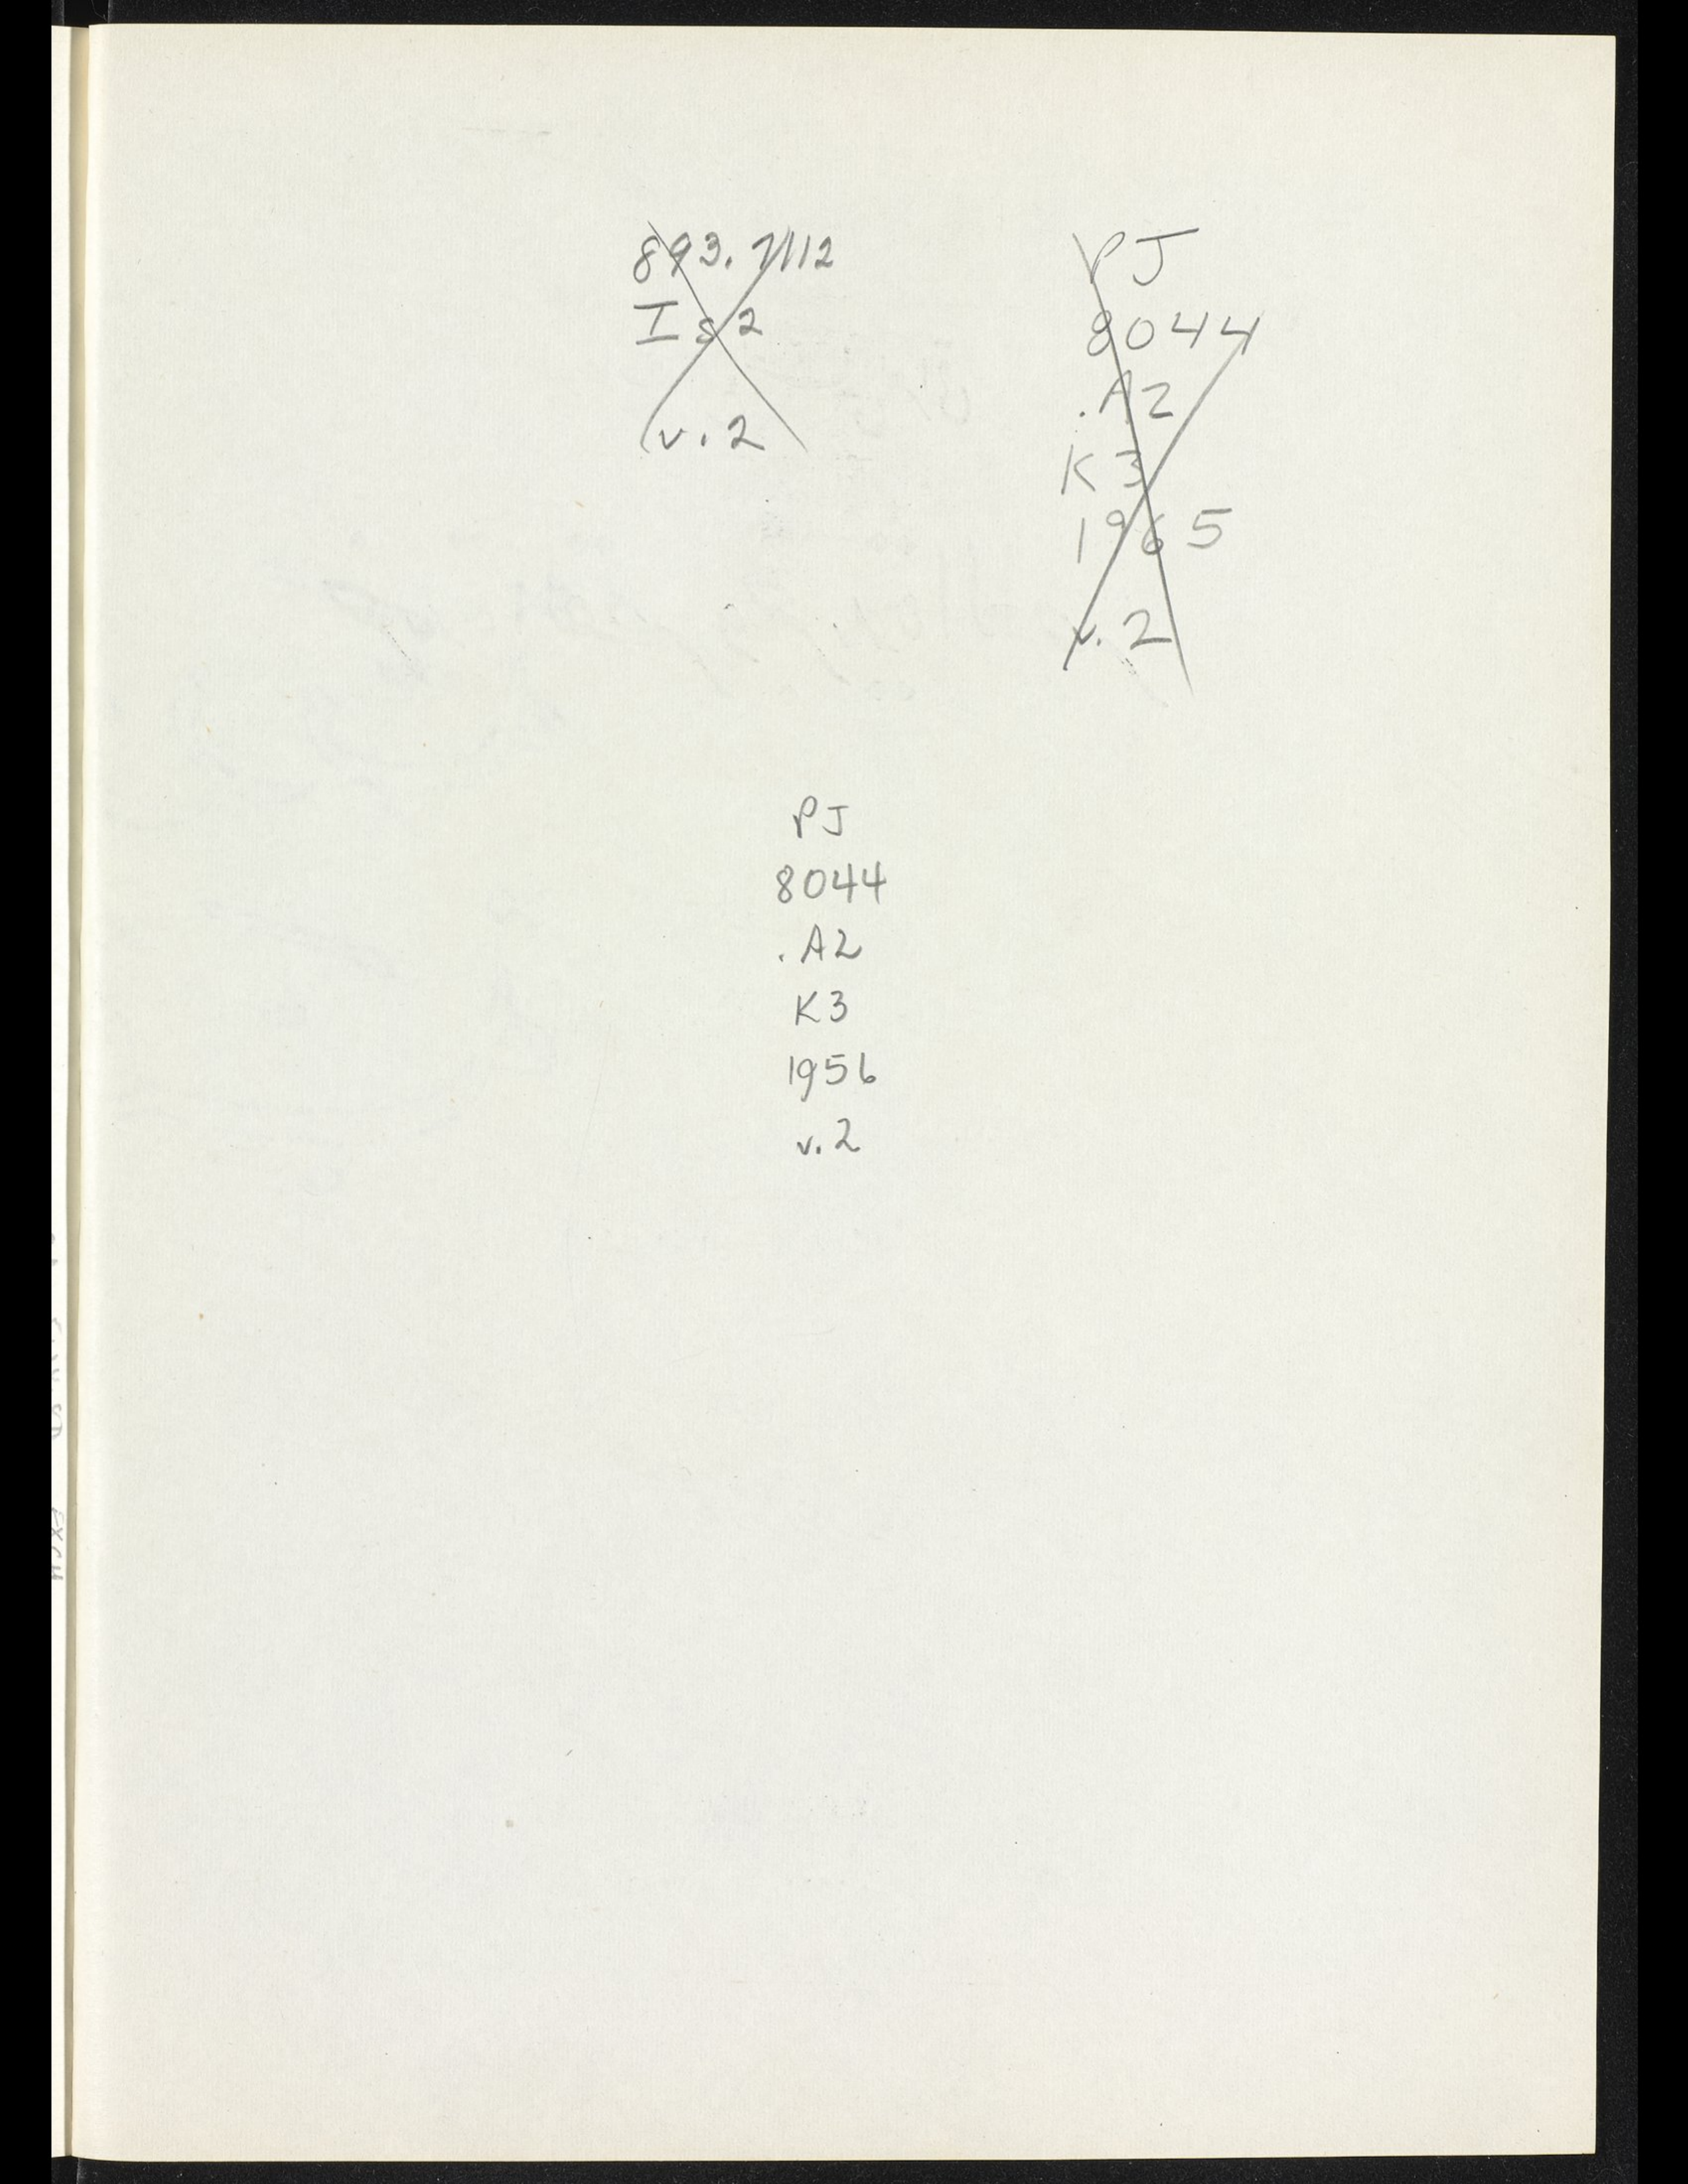 893.7112
Is2
v.2
PJ
8044
.A2
K3
1965
v.2
PJ
8044
.A2
K3
1956
v.2